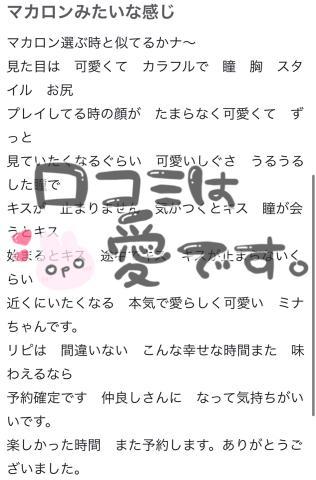 マカロンみたいな感じ
マカロン選ぶ時と似てるかナ〜
見た目は　可愛くて　カラフルで　瞳　胸　スタ
イル　お尻
プレイしてる時の顔が　たまらなく可愛くて　ず
っと
見ていたくなるぐらい　可愛いしぐさ　うるうる
した瞳で
キスが　止まりません　気がつくとキス　瞳が会
うとキス
始まるとキス　途中でキス　キスが止まらないく
らい
近くにいたくなる　本気で愛らしく可愛い　ミナ
ちゃんです。
リピは　間違いない　こんな幸せな時間また　味
わえるなら
予約確定です　仲良しさんに　なって気持ちがい
いです。
楽しかった時間　また予約します。ありがとうご
ざいました。
口コミは
愛です。